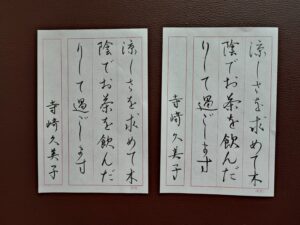 涼しさを求めて木
陰でお茶を飲んだ
りして過ごします
寺崎久美子
涼しさを求めて木
陰でお茶を飲んだ
りして過ごします
寺崎久美子